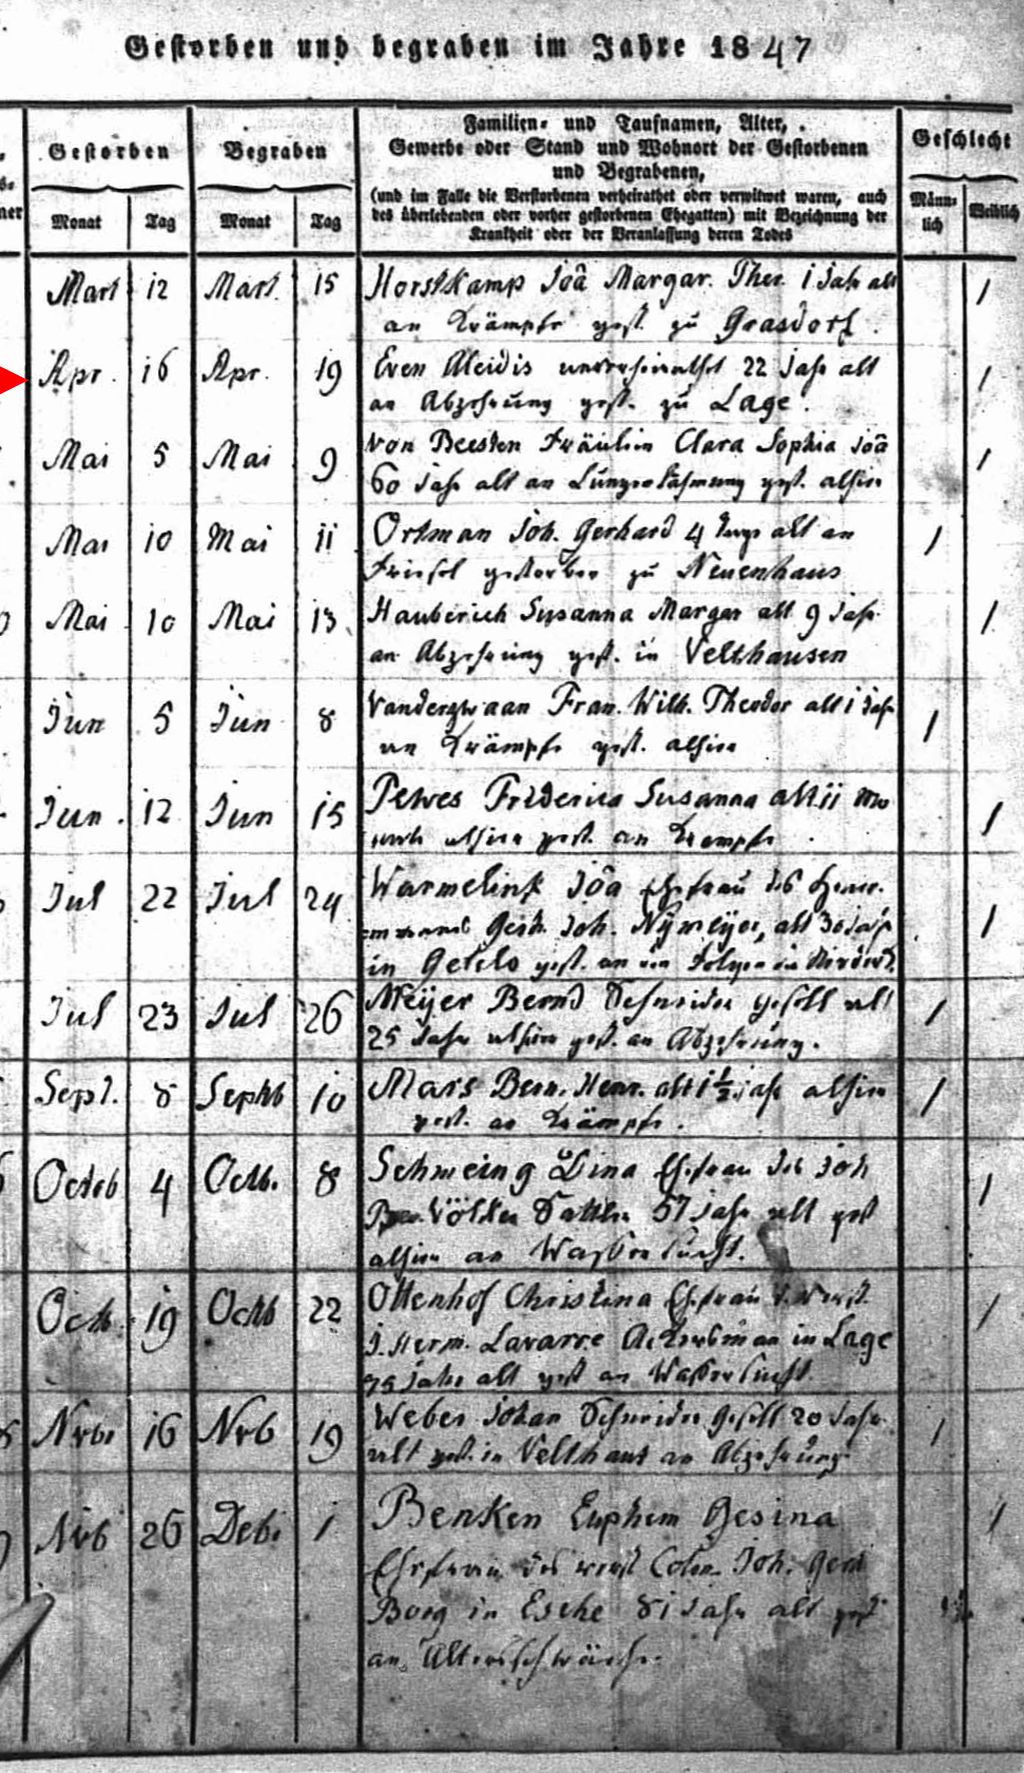 Gestorben und begraben im Jahre 1847
Gestorben
Begraben
Familien- und Taufnamen, Alter,
Gewerbe oder Stand und Wohnort der Gestorbenen
und Begrabenen,
(und im Falle die Verstorbenen verheirathet oder verwitwet waren, auch
des überlebenden oder vorher gestorbenen Ehegatten) mit Bezeichnung der
Krankheit oder der Veranlassung deren Todes
Geschlecht
Monat Tag Monat Tag
Männ-
lich
Weiblich
Mart 12 Mart. 15 Horstkamp Joâ Margar. Ther. 1 Jahr alt 1
an Krämpfe gest. zu Grasdorf.
Apr. 16 Apr. 19 Even Aleidis unverheirathet 22 Jahr alt 1
an Abzehrung gest. zu Lage.
Mai 5 Mai 9 Von Beesten Fräulein Clara Sophia Joâ 1
60 Jahr alt an Lungenlähmung gest. alhier
Mai 10 Mai 11 Ortman Joh. Gerhard 4 Tage alt an 1
Friesel gestorben zu Neuenhaus
Mai 10 Mai 13 Hauberich Susanna Margar alt 9 Jahr 1
an Abzehrung gest. in Velthausen
Jun 5 Jun 8 Vanderzwaan Fran. Wilh. Theodor alt 1 Jahr 1
an Krämpfe gest. alhier
Jun. 12 Jun 15 Petves Friderica Susanna alt 11 Mo 1
alhier gest. an Krampfe
Jul 22 Jul 24 Warmelink Joâ Ehefrau des 1
Gerh. Joh. Nijmeijer, alt 30 Jahr
in Getelo gest. an den Folgen
Jul 23 Jul 26 Meijer Bernd Schneider gesell alt 1
25 Jahr alhier gest. an Abzehrung.
Sept. 8 Septb 10 Mars Bern. Henr. alt 1½ Jahr alhier 1
gest. an Krämpfe.
Octob 4 Octb. 8 Schweing Dina Ehefrau des Joh 1
Völker Sattler 57 Jahr alt gest
alhier an Wassersucht.
Octb. 19 Octb 22 Ottenhof Christina Ehefrau d. verst. 1
J. Herm. Lavarre Ackersman in Lage
75 Jahr alt gest an Wassersucht.
Nvbr 16 Nvb 19 Weber Johan Schneider Gesell 20 Jahr 1
alt gest. in Velthaus an Abzehrung
Nvb 26 Debr 1 Benken Euphem Gesina 1
Ehefrau des verst Colon Joh. Gerd
Borg in Esche 81 Jahr alt gest
an Altersschwäche.